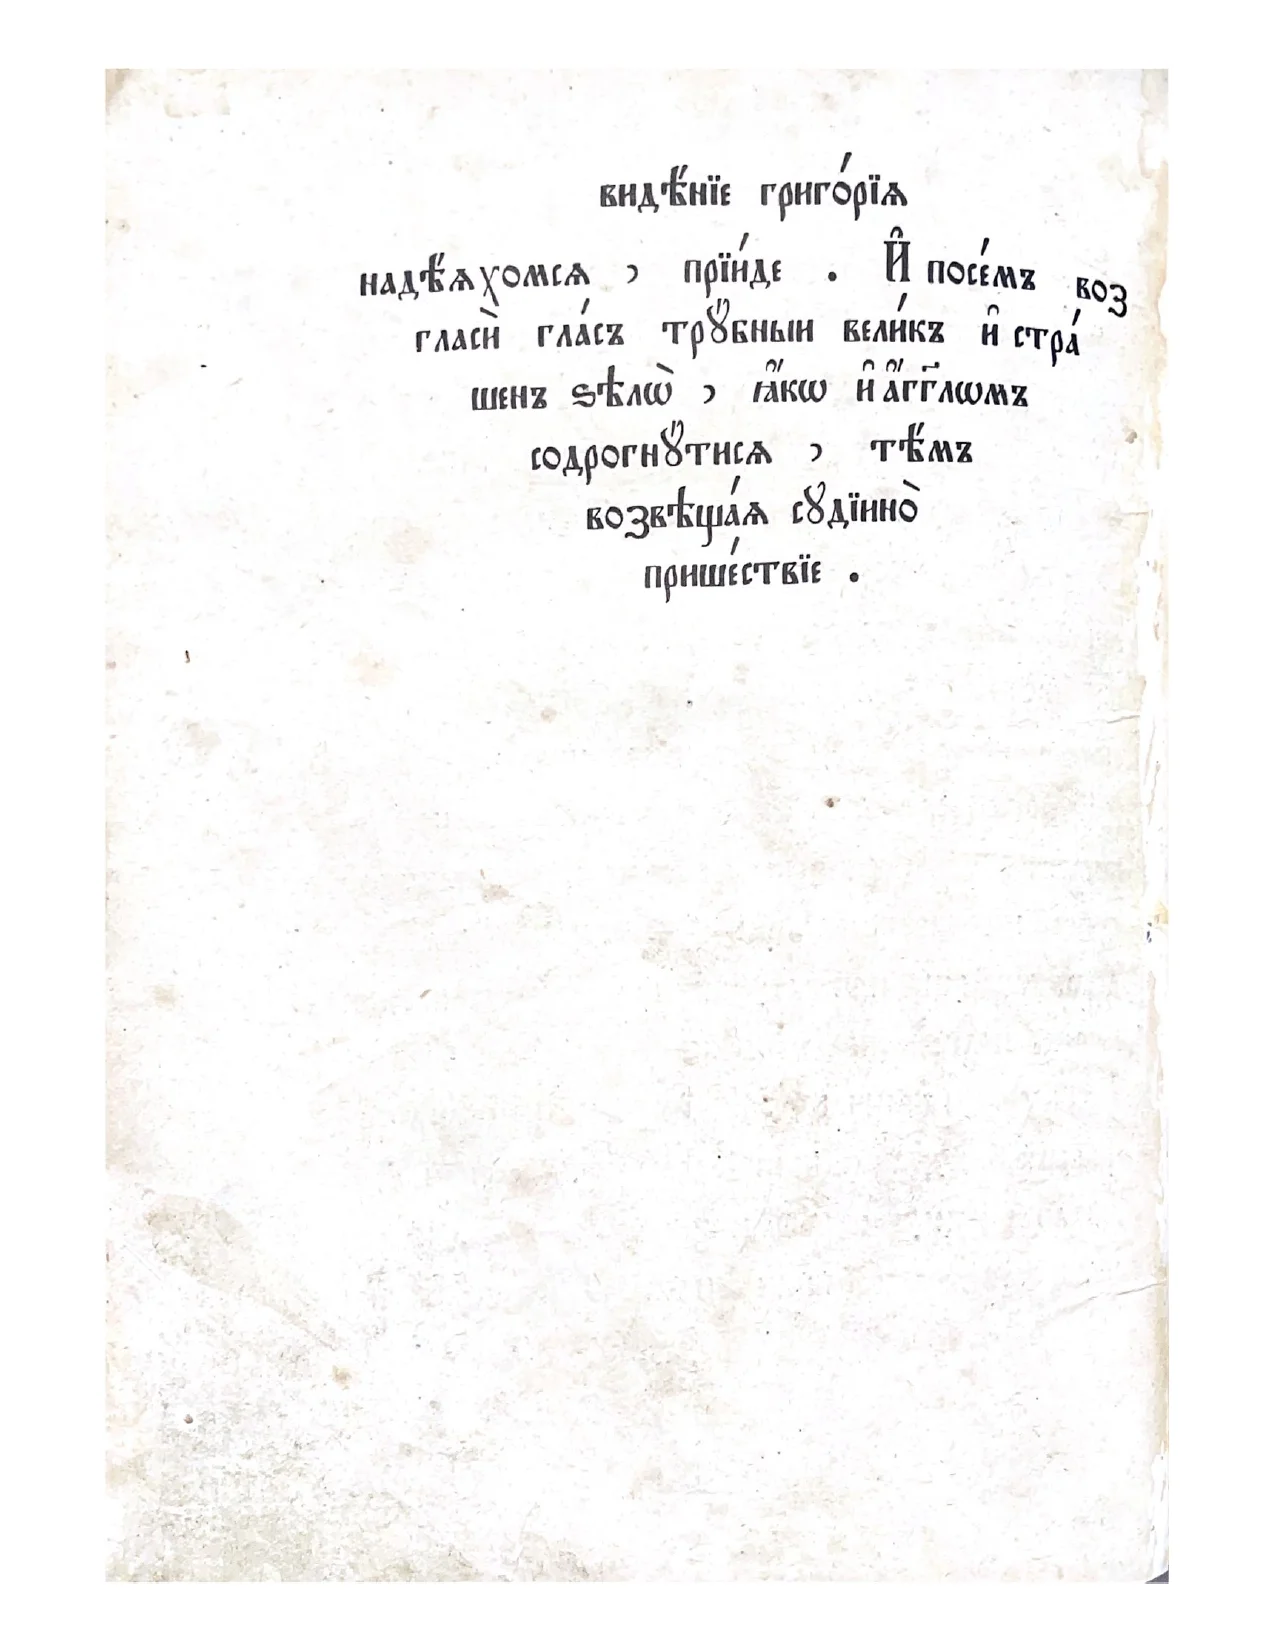 видѣ́нїе григо́рїѧ
надѣ́ѧхомсѧ , прїи́де . И҆ посе́мъ воз
гласѝ гла́съ трꙋ́бныи вели́къ и҆ стра́
шенъ ѕѣлѡ̀ , ꙗ҆́кѡ и҆ а҆́гг҃лѡмъ
содрогнꙋ́тисѧ , тѣ́мъ
возвѣща́ѧ сꙋдїино̀
прише́ствїе .